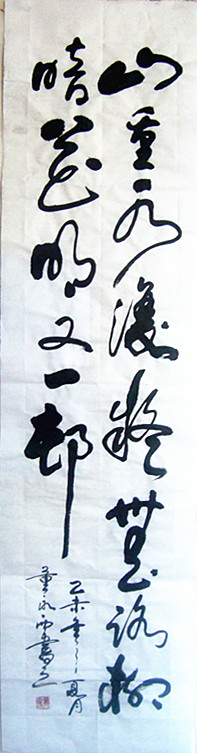 山重水復疑無路柳
暗花明又一邨
乙未年夏月
董永